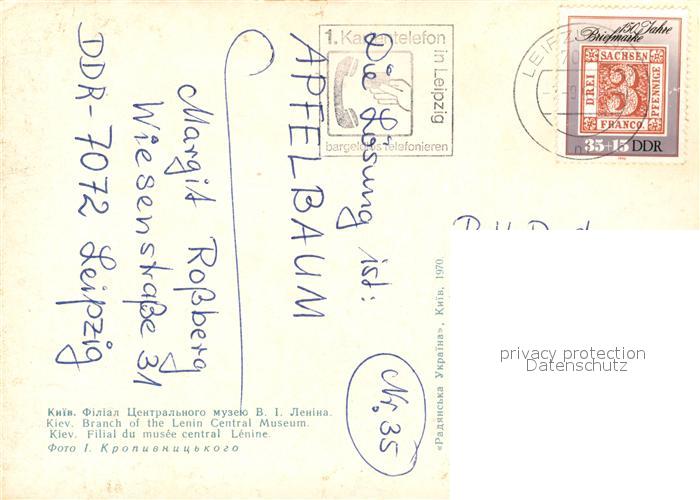 Die Lösung ist:
APFELBAUM
Nr. 35
Margit Roßberg
Wiesenstraße 31
DDR-7072 Leipzig
1. Kartentelefon
in Leipzig
bargeldlos telefonieren
LEIPZIG
150 Jahre
Briefmarke
SACHSEN
DREI
3
PFENNIGE
FRANCO
35+15 DDR
privacy protection
Datenschutz
«Радянська Україна», Київ, 1970.
Київ. Філіал Центрального музею В. І. Леніна.
Kiev. Branch of the Lenin Central Museum.
Kiev. Filial du musée central Lénine.
Фото І. Кропивницького